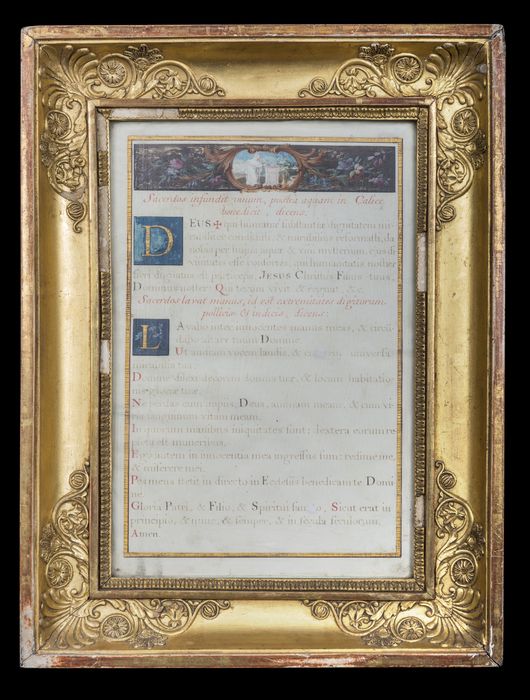 Sacerdos infundit vinum, postea aquam in Calice
benedicit, dicens.
DEUS ✠ qui humanæ substantiæ dignitatem mi-
rabiliter condidisti, & mirabilius reformasti, da
nobis per hujus aquæ & vini mysterium, ejus di-
vinitatis esse consortes, qui humanitatis nostræ
fieri dignatus est particeps, JESUS Christus Filius tuus,
Dominus noster: Qui tecum vivit & regnat, & c.
Sacerdos lavat manus, id est extremitates digitorum
pollicis & indicis, dicens:
Lavabo inter innocentes manus meas, & circū-
dabo altare tuum Domine.
Ut audiam vocem laudis, & enarrem universa
mirabilia tua.
Domine dilexi decorem domus tuæ, & locum habitatio-
nis gloriæ tuæ.
Ne perdas cum impiis, Deus, animam meam, & cum vi-
ris sanguinum vitam meam.
In quorum manibus iniquitates sunt; dextera eorum re-
pleta est muneribus.
Ego autem in innocentia mea ingressus sum: redime me,
& miserere mei.
Pes meus stetit in directo in Ecclesiis benedicam te Domi-
ne.
Gloria Patri, & Filio, & Spiritui sancto, Sicut erat in
principio, & nunc, & semper, & in sæcula sæculorum,
Amen.